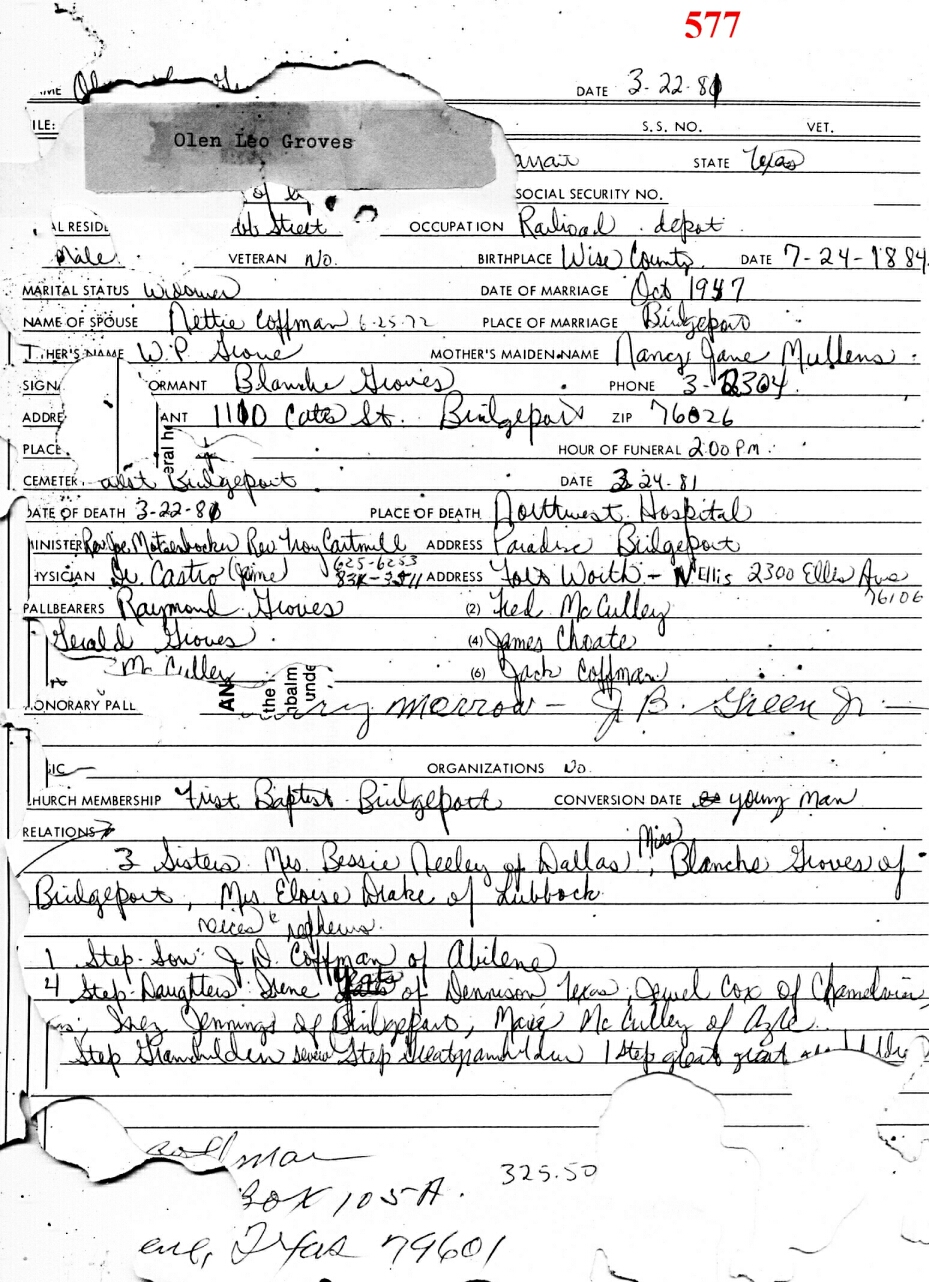 577
DATE 3-22-81
Olen Leo Groves
S.S. NO. VET.
STATE Texas
SOCIAL SECURITY NO.
AL RESIDE Street OCCUPATION Railroad depot
Male VETERAN No. BIRTHPLACE Wise County DATE 7-24-1884
MARITAL STATUS Widower DATE OF MARRIAGE Oct 1947
NAME OF SPOUSE Nettie Coffman 6-25-72 PLACE OF MARRIAGE Bridgeport
HER'S NAME W.P. Grove MOTHER'S MAIDEN NAME Nancy Jane Mullens
SIGN ORMANT Blanche Groves PHONE 3-2304
ADDRE ANT 1110 Cates St. Bridgeport ZIP 76026
PLACE eral h HOUR OF FUNERAL 2:00 P.M.
CEMETER East Bridgeport DATE 3-24-81
DATE OF DEATH 3-22-81 PLACE OF DEATH Northwest Hospital
MINISTER Rev. Joe Motsenbocker Rev Troy Cartmill ADDRESS Paradise Bridgeport
HYSICIAN Dr. Castro (Jaime) 625-6253 ADDRESS Fort Worth - N Ellis 2300 Ellis Ave
76106
PALLBEARERS Raymond Groves (2) Fred McCulley
Gerald Groves (4) James Choate
McCulley (6) Jack Coffman
AN the nbalm unde
ONORARY PALL Morrow - J.B. Green Jr.
SIC ORGANIZATIONS No.
HURCH MEMBERSHIP First Baptist Bridgeport CONVERSION DATE young man
RELATIONS
3 Sisters Mrs. Bessie Neeley of Dallas, Miss Blanche Groves of
Bridgeport, Mrs Eloise Drake of Lubbock
nices & nephews.
1 Step-Son J.D. Coffman of Abilene
4 Step-Daughters Irene Yats of Dennison Texas, Jewel Cox of
Inez Jennings of Bridgeport, Marie McCulley of Azle
Step Grandchildren several Step Greatgrandchildren 1 step great great
325.50
Box 105A.
ene, Texas 79601